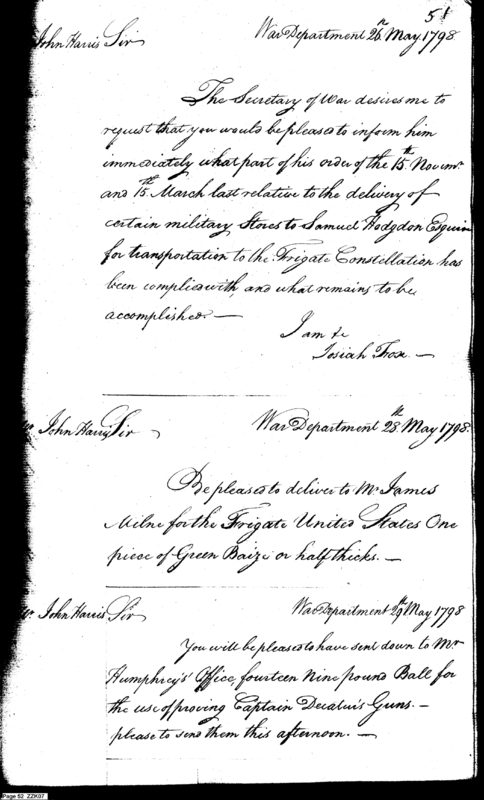 51
John Harris Sir War Department 26th May 1798
The Secretary of War desires me to
request that you would be pleased to inform him
immediately what part of his order of the 15th Novemr.
and 15th March last relative to the delivery of
certain military Stores to Samuel Hodgdon Esquire
for transportation to the Frigate Constellation has
been complied with, and what remains to be
accomplished —
I am &c
Josiah Fox —
Mr. John Harris Sir War Department 28th May 1798.
Be pleased to deliver to Mr James
Milne for the Frigate United States One
piece of Green Baize or half thicks. —
Mr. John Harris Sir War Department 29th May 1798
You will be pleased to have sent down to Mr
Humphrey's Office, fourteen Nine pound Ball for
the use of proving Captain Decatur's Guns. —
please to send them this afternoon. —
Page 52 ZZK07